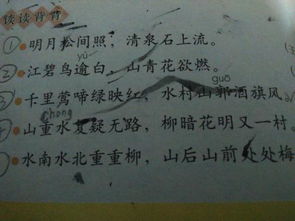 读读背背
① 明月松间照，清泉石上流。
yú
② 江碧鸟逾白，山青花欲燃。
guō
③ 千里莺啼绿映红，水村山郭酒旗风
chóng
④ 山重水复疑无路，柳暗花明又一村。
⑤ 水南水北重重柳，山后山前处处梅